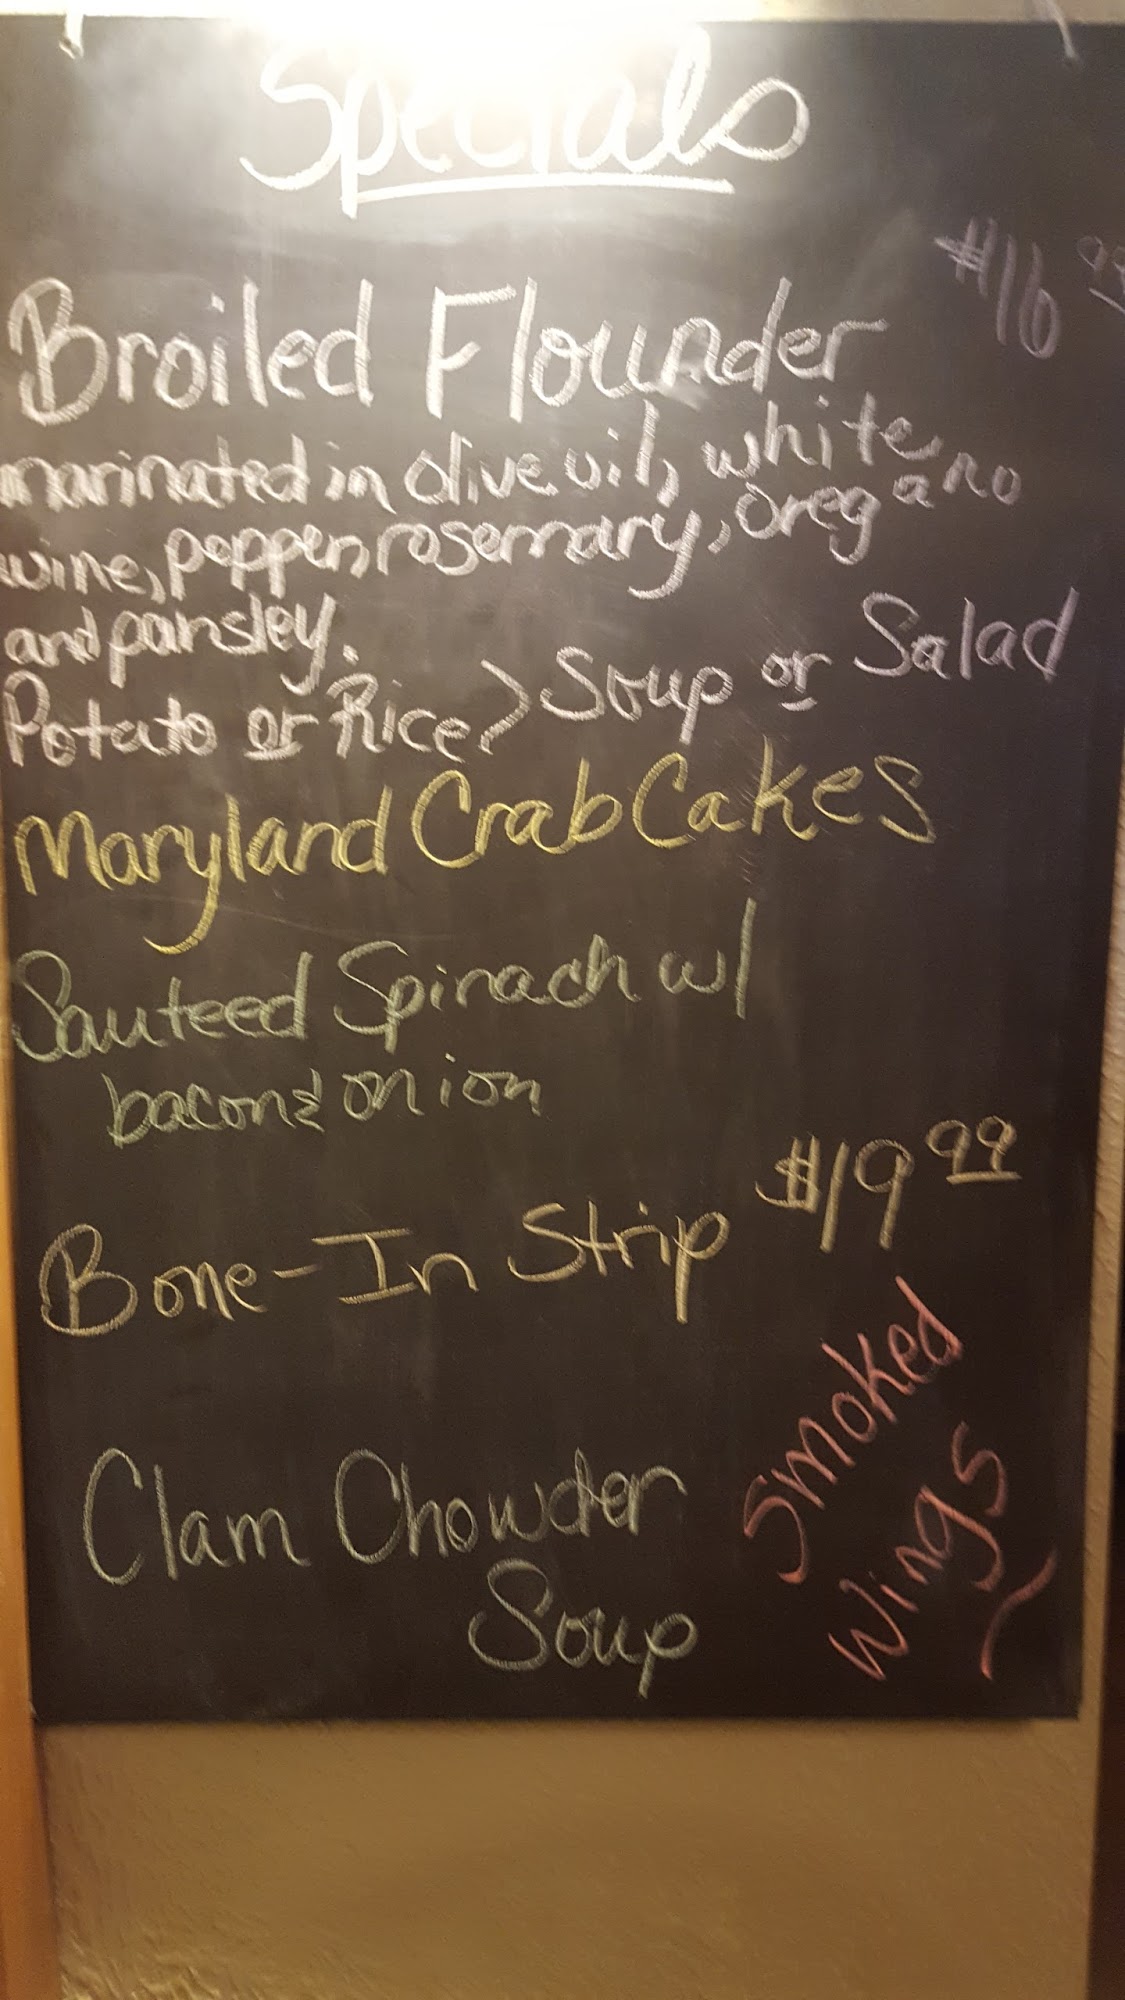 Specials
$16 99
Broiled Flounder
marinated in olive oil, white
wine, pepper, rosemary, oregano
and parsley.
Potato or Rice > Soup or Salad
Maryland Crab Cakes
Sauteed Spinach w/
bacon & onion
$19 99
Bone-In Strip
Smoked
Wings
Clam Chowder
Soup